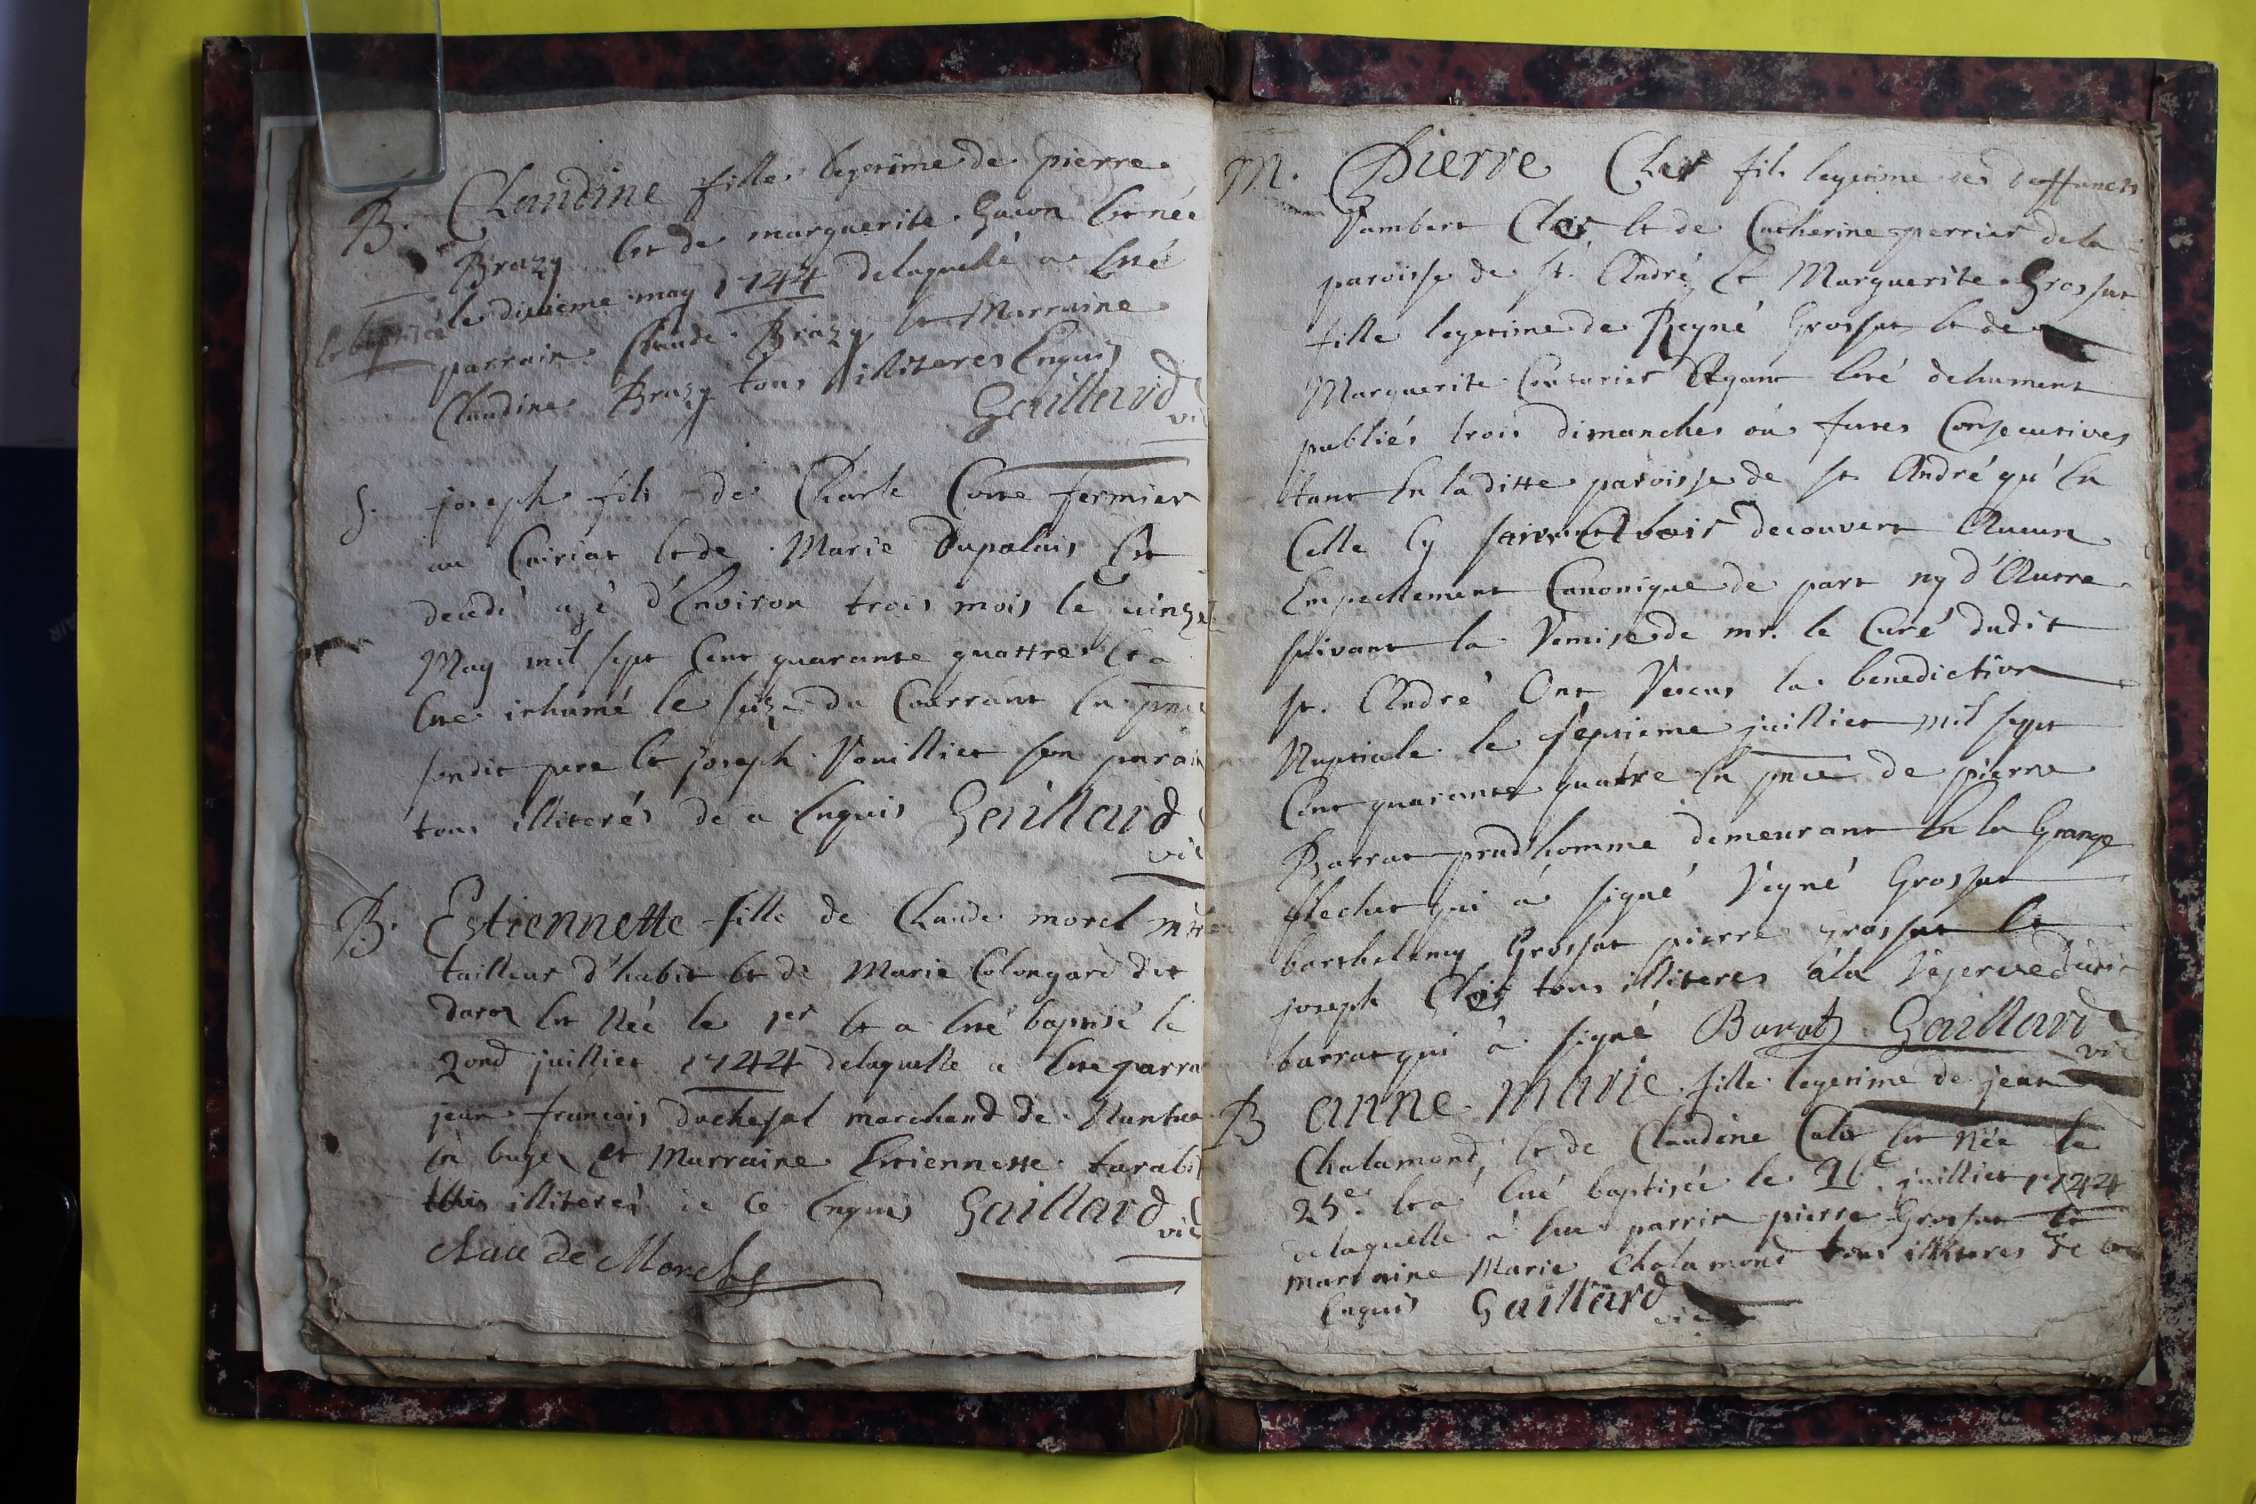 B. Claudine fille legetime de pierre
Brazy et de marguerite Guion est née
et baptisée le dixieme may 1744 delaquelle a etté
parrain Claude Brazy et Marraine
Claudine Brazy tous illiteres Enquis
Gaillard vic
S. joseph fils de Charle Cotte fermier
au Cuiriat et de Marie Dupalais est
decedé agé d'Environ trois mois le
May mil sept Cent quarante quattre et a
etté inhumé le seize du Courrant En pnce
sondit pere et joseph Vouillier son parain
tous illiterés de ce Enquis Gaillard
vic
B. Estiennette fille de Claude morel mtre
tailleur d'habit et de Marie Colongard dit
est Née le 1er et a etté baptisé le
2ond juillier 1744 delaquelle a etté parra
jean francois duchesal marchand de Nantua
En bugey et Marraine Etiennette
illiterés de Ce Enquis Gaillard
vic
claude Morel
M. Pierre Cler fils legetime des deffuncts
Jambert Cler et de Catherine perrier dela
paroisse de st. André, et Marguerite Grossat
fille legetime de Regné Grossat et de
Marguerite Couturier Ayant etté dehument
publiés trois dimanches où festes Consecutives
tant En la ditte paroisse de st. André qu'En
Celle Cy sans Avoir decouvert Aucun
Empechement Canonique de part ny d'Autre
suivant la Remise de mr. le Curé dudit
st. André Ont Receus la benediction
Nuptiale le septieme juillier mil sept
Cent quarante quatre En pnce de pierre
Barrat prud'homme demeurant En la Grange
flechet qui a signé Regné Grossat
barthelemy Grossat pierre grossat Et
joseph Cler tous illiteres à la Reserve dudit
barrat qui à signé Barat Gaillard
vic
B anne marie fille legetime de jean
Chalamond, et de Claudine Calor est Née le
25e. et à etté baptisée le 26e. juillier 1744
delaquelle à etté parrin pierre Grossat et
marraine Marie Chalamond tous illiteres de ce
Enquis Gaillard
vic